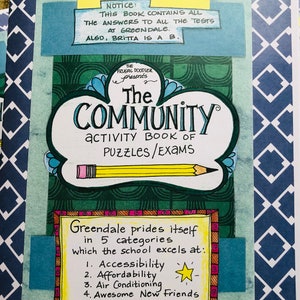 NOTICE:
THIS BOOK CONTAINS ALL
THE ANSWERS TO ALL THE TESTS
AT GREENDALE.
ALSO, BRITTA IS A B.
THE FRUGAL DOODLER
presents
The
COMMUNITY
ACTIVITY BOOK OF
PUZZLES/EXAMS
Greendale prides itself
in 5 categories
which the school excels at:
1. Accessibility
2. Affordability
3. Air Conditioning
4. Awesome New Friends